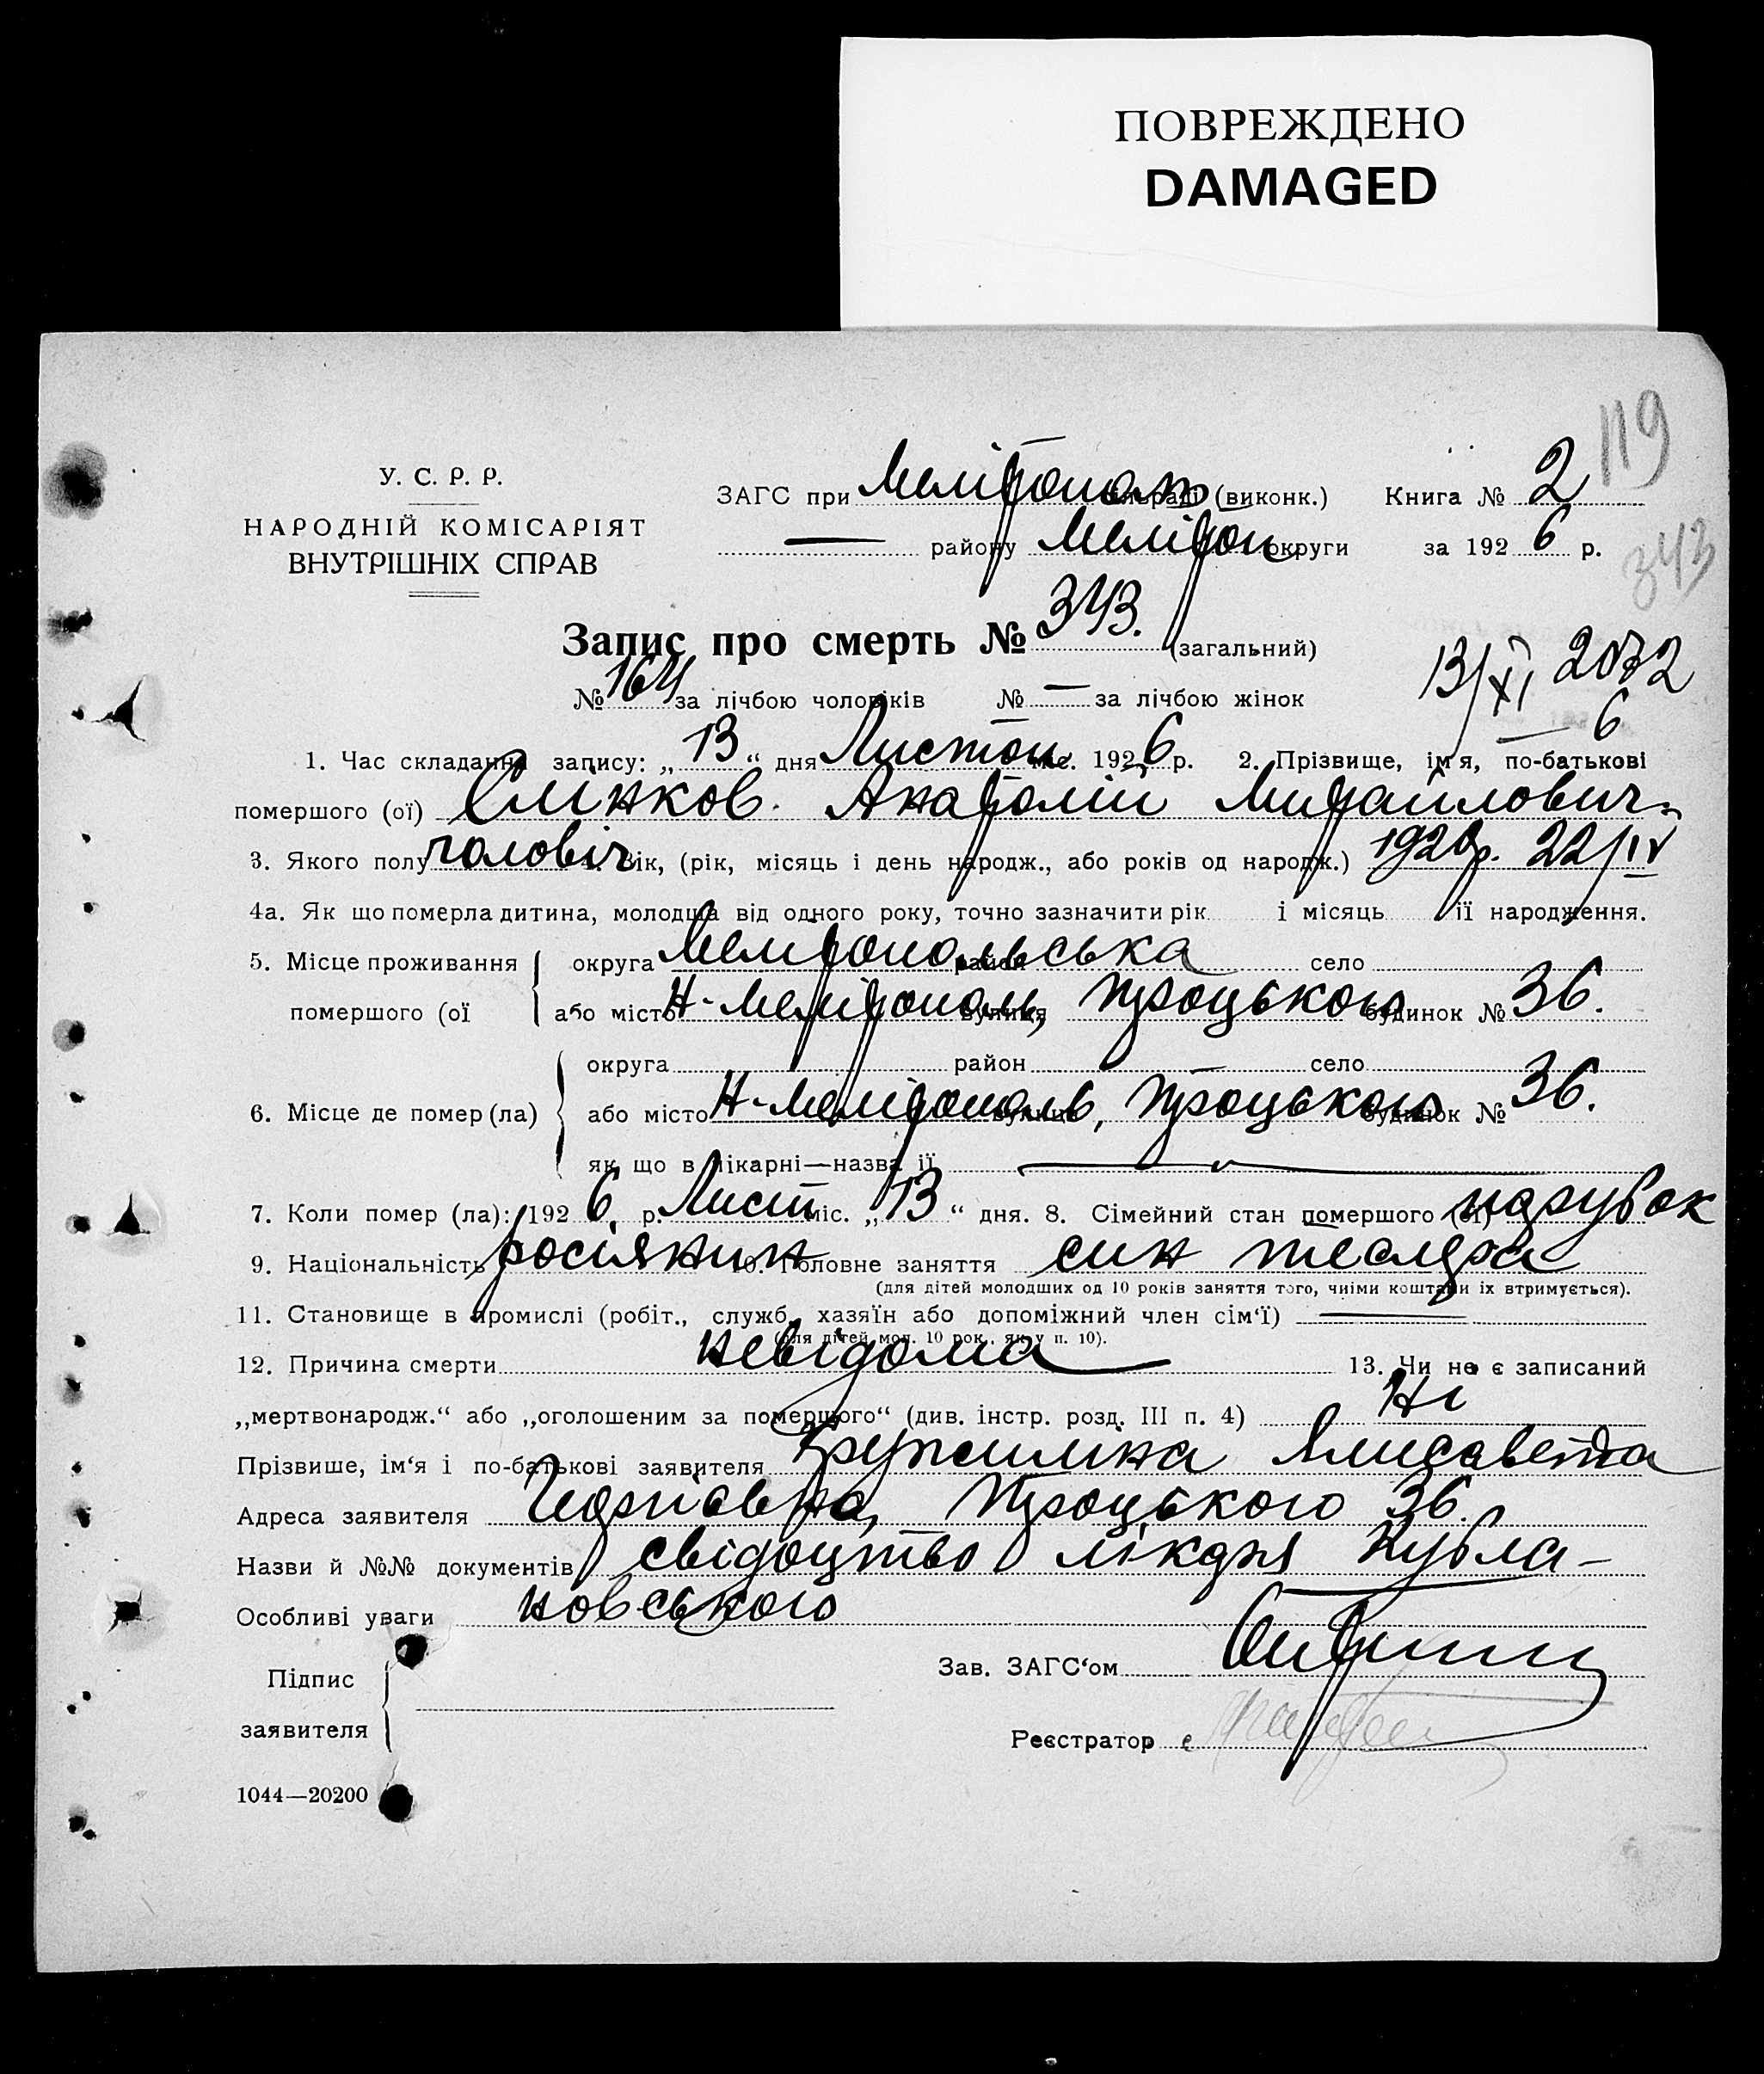 ПОВРЕЖДЕНО
DAMAGED
119
У. С. Р. Р.
НАРОДНІЙ КОМІСАРІЯТ
ВНУТРІШНІХ СПРАВ
ЗАГС при Меліտопол (виконк.) Книга № 2
— району Меліտоп округи за 1926 р.
343
Запис про смерть № 343. (загальний)
№ 164 за лічбою чоловіків № — за лічбою жінок
13/XI
6
1. Час складання запису: „13“ дня Листоп міс. 1926 р. 2. Прізвище, ім'я, по-батькові
помершого (ої) Слінков Анатолій Михайлович
3. Якого полу чоловіч 4. Вік, (рік, місяць і день народж., або років од народж.) 22/IV
4а. Як що померла дитина, молодша від одного року, точно зазначити рік і місяць її народження.
5. Місце проживання округа Мелітопольська район село
помершого (ої або місто Н-Мелітополь, вулиця Троцького будинок № 36.
округа район село
6. Місце де помер (ла) або місто Н-Мелітополь, вулиця Троцького будинок № 36.
як що в лікарні—назва її —
7. Коли помер (ла): 1926 р. Лист міс. „13“ дня. 8. Сімейний стан помершого (ої) парубок
9. Національність росіянин 10. Головне заняття син тесляра
(для дітей молодших од 10 років заняття того, чиїми коштами їх втримується).
11. Становище в промислі (робіт., служб. хазяїн або допоміжний член сім'ї) —
(для дітей мол. 10 рок., як у п. 10).
12. Причина смерти невідома 13. Чи не є записаний
„мертвонародж.“ або „оголошеним за помершого“ (див. інстр. розд. III п. 4) Ні
Прізвише, ім'я і по-батькові заявителя Ялисавета
Адреса заявителя Троцького 36.
Назви й №№ документів свідоцтво лікаря Кубла-
Особливі уваги новського
Підпис
заявителя
Зав. ЗАГС'ом
Реєстратор
1044—20200